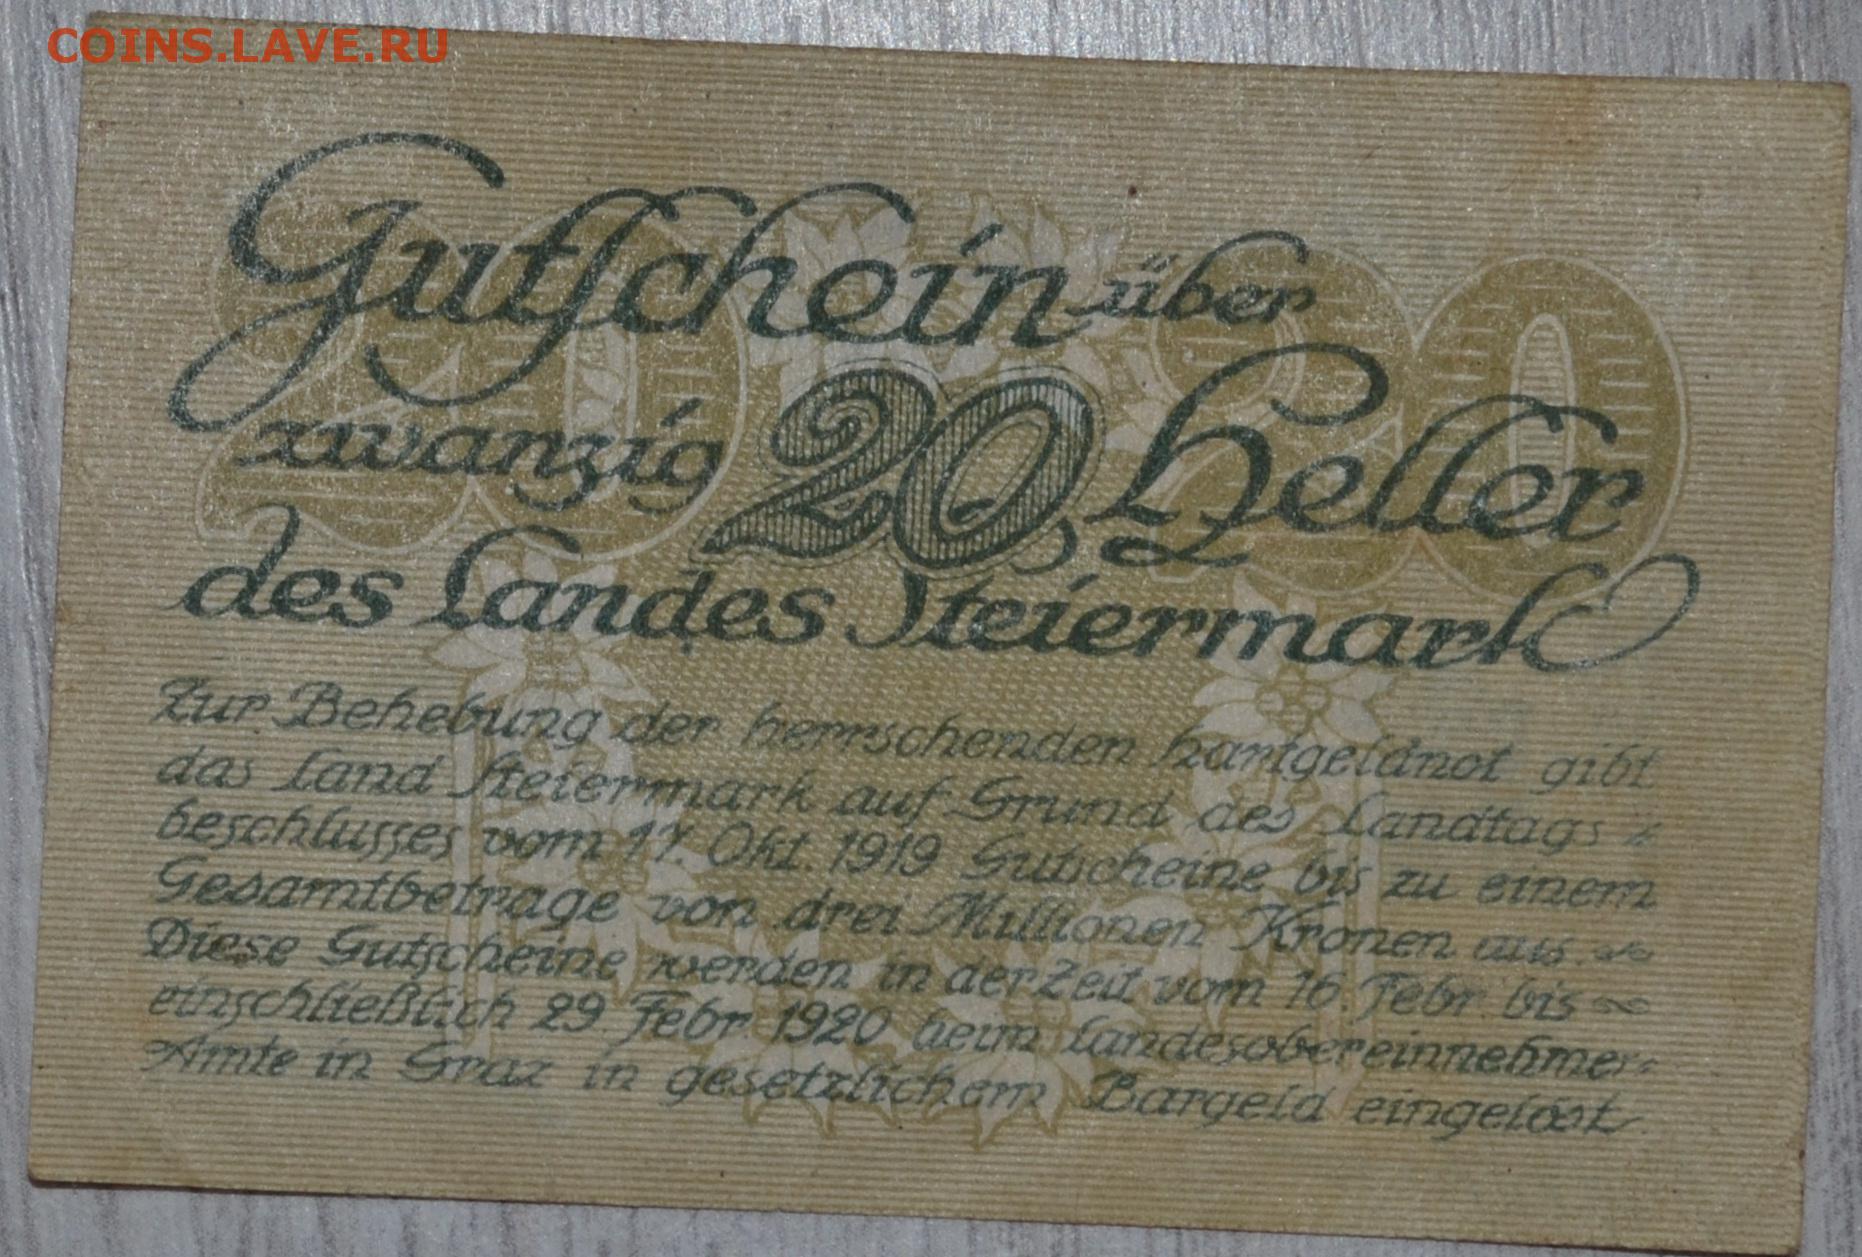 COINS.LAVE.RU
Gutschein über
zwanzig 20 Heller
des Landes Steiermark
Zur Behebung der herrschenden Hartgeldnot gibt
das Land Steiermark auf Grund des Landtags=
beschlusses vom 17. Okt. 1919 Gutscheine bis zu einem
Gesamtbetrage von drei Millionen Kronen aus.
Diese Gutscheine werden in der Zeit vom 16. Febr. bis
einschließlich 29. Febr. 1920 beim Landesobereinnehmer=
Amte in Graz in gesetzlichem Bargeld eingelöst.
20 20